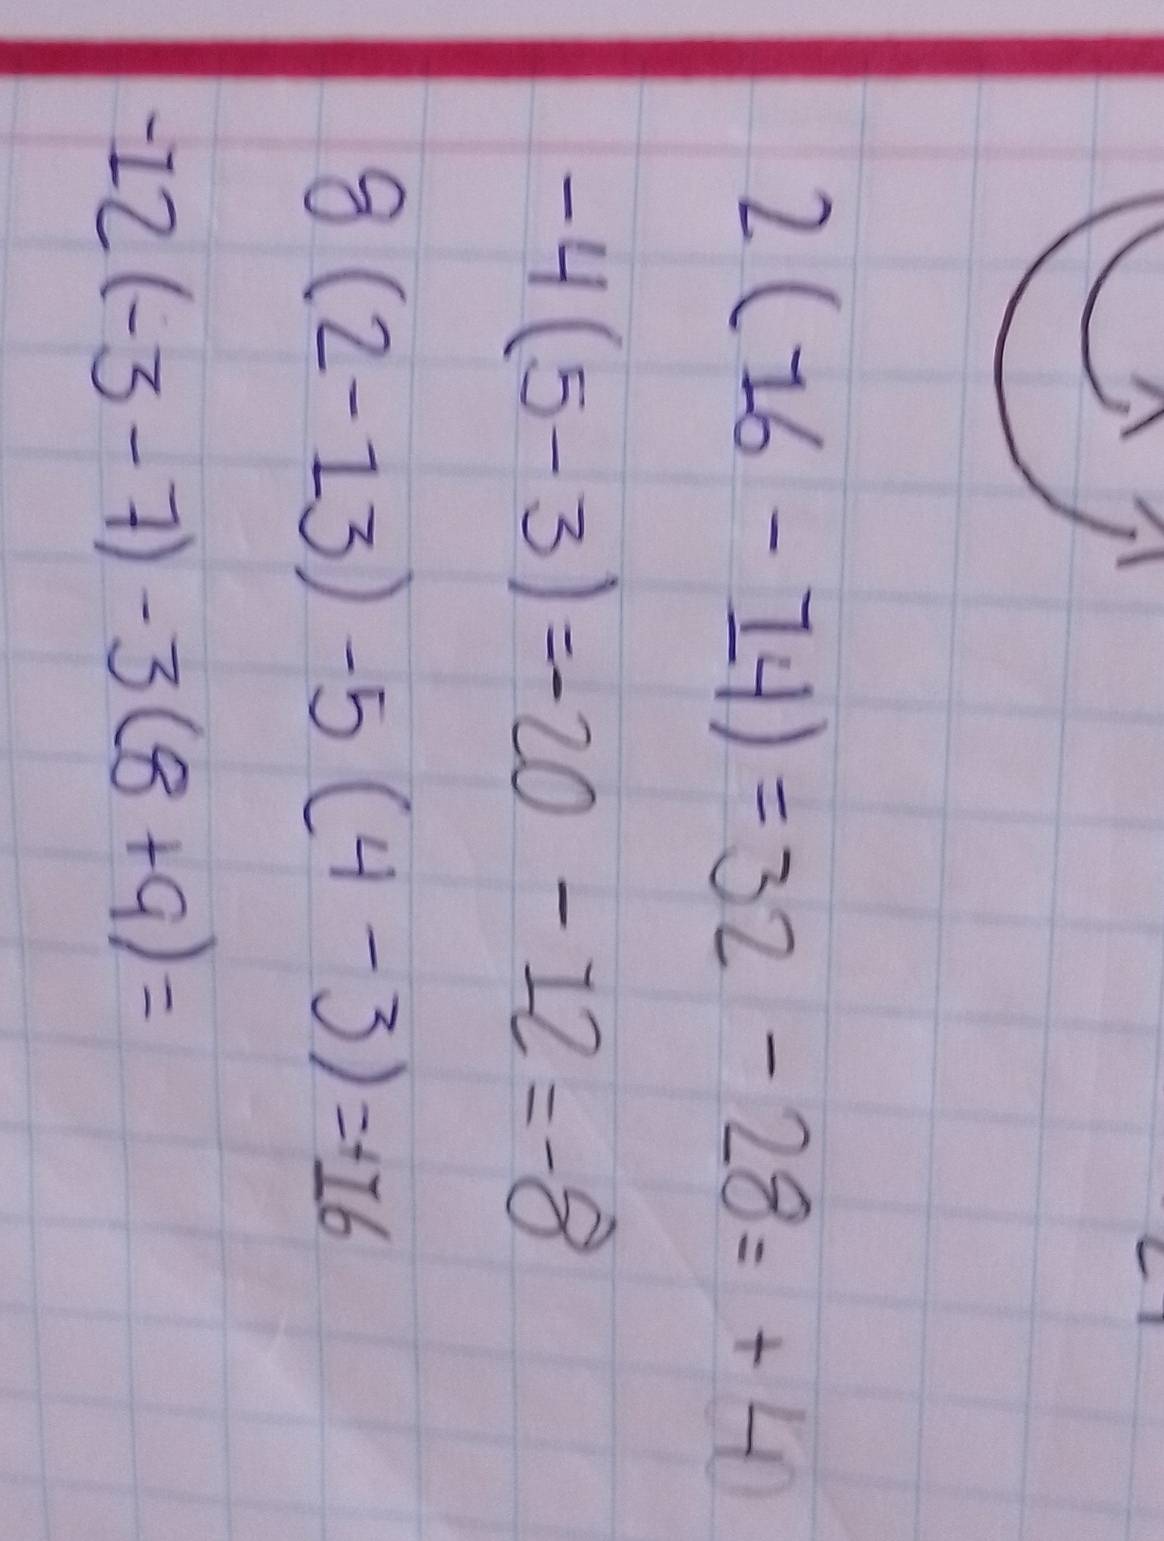 2(16 - 14) = 32 - 28 = + 4
-4(5-3) =-20 - 12 = -8
8(2-13) -5(4-3)=+16
-12(-3-7) -3(8+9)=